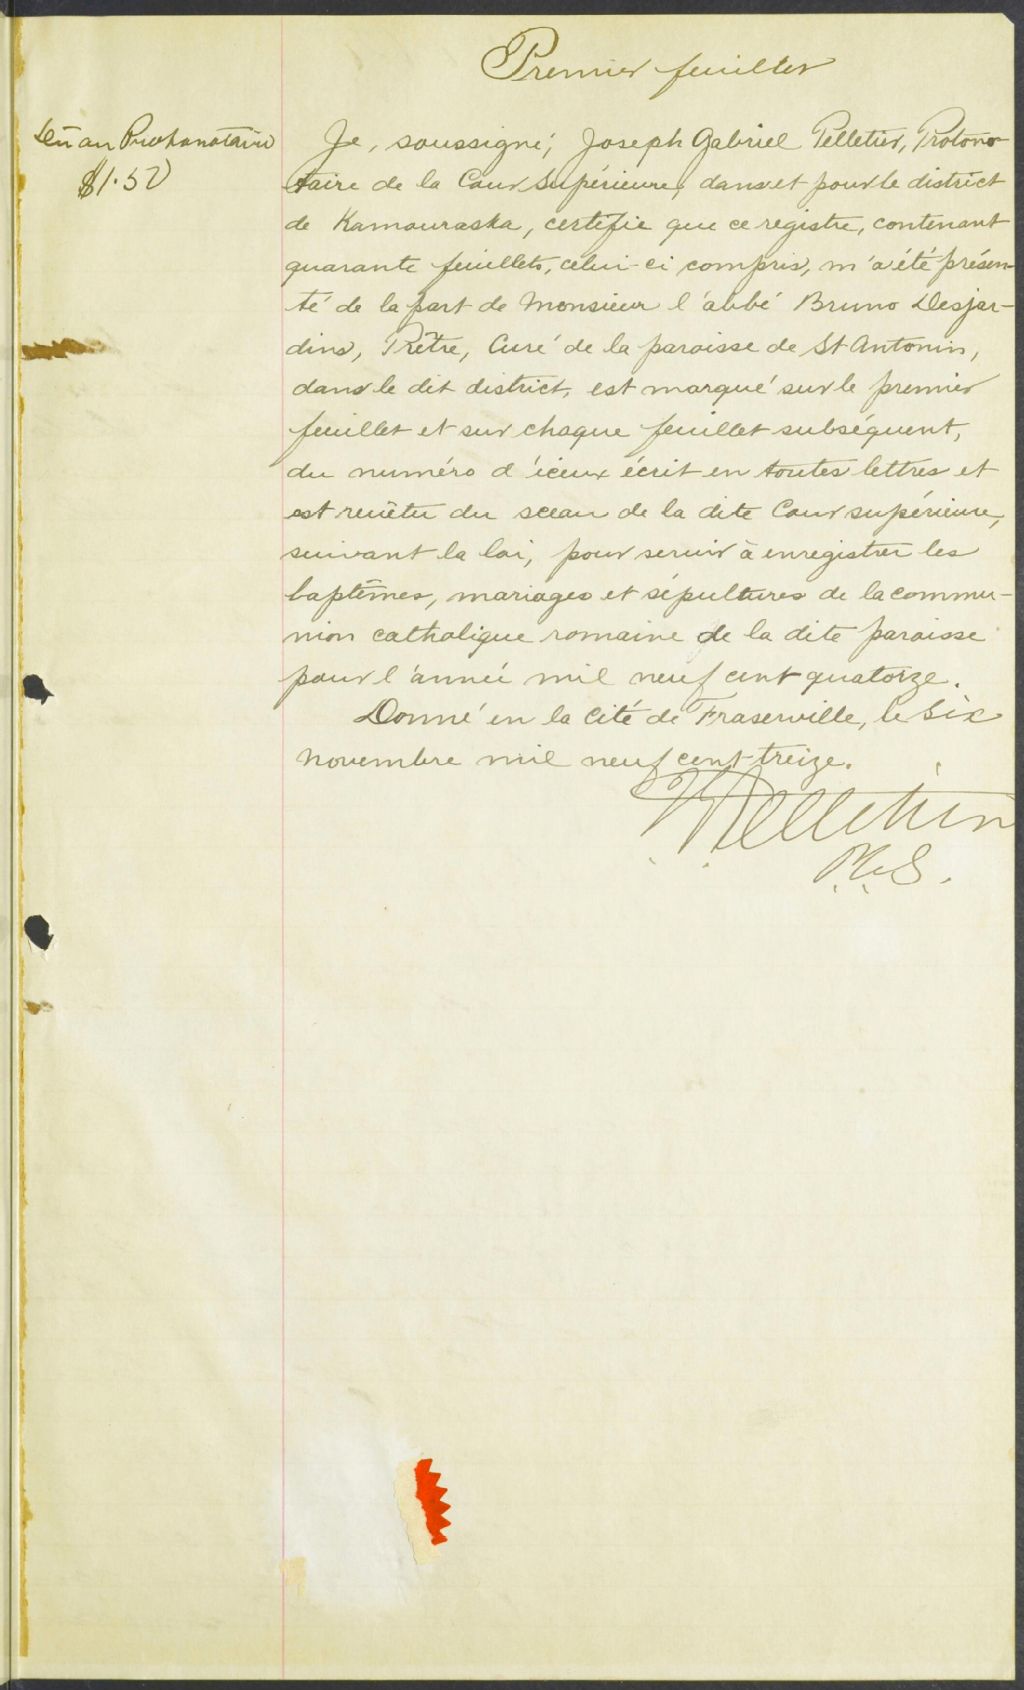 Premier feuillet
Dû au Protonotaire
$1.50
Je, soussigné, Joseph Gabriel Pelletier, Protono-
taire de la Cour Supérieure, dans et pour le district
de Kamouraska, certifie que ce registre, contenant
quarante feuillets, celui-ci compris, m'a été présen-
té de la part de Monsieur l'abbé Bruno Desjar-
dins, Prêtre, Curé de la paroisse de St Antonin,
dans le dit district, est marqué sur le premier
feuillet et sur chaque feuillet subséquent,
du numéro d'iceux écrit en toutes lettres et
est revêtu du sceau de la dite Cour supérieure,
suivant la loi, pour servir à enregistrer les
baptêmes, mariages et sépultures de la commu-
nion catholique romaine de la dite paroisse
pour l'année mil neuf cent quatorze.
Donné en la Cité de Fraserville, le six
novembre mil neuf cent treize.
Pelletier
P.C.S.